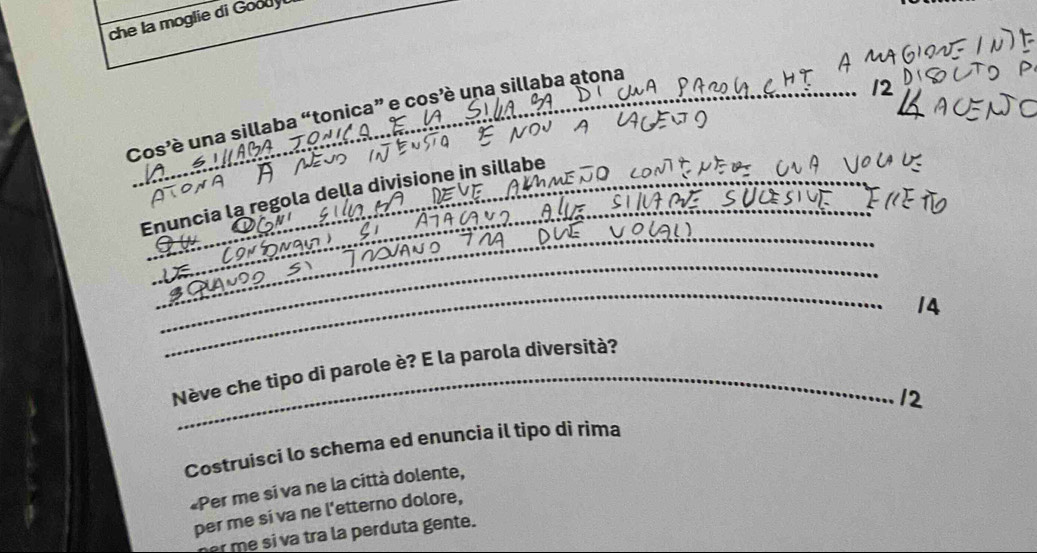 che la moglie di Goody
Cos'è una sillaba “tonica” e cos'è una sillaba atona
LA SILLABA TONICA E LA SILLABA DI UNA PAROLA CHE A MAGIONE INTE
ATONA A MENO INTENSITA E NON A L'ACENTO
12 DISOLTO P
L'ACENTO
Enuncia la regola della divisione in sillabe
OGNI SILLABA DEVE ALMENO CONTENERE UNA VOCALE
LE CONSONANTI SI ATACANO ALLE SILLABE SUCESIVE ECCETTO
QUANDO SI TROVANO TRA DUE VOCALI
14
Nève che tipo di parole è? E la parola diversità?
12
Costruisci lo schema ed enuncia il tipo di rima
«Per me si va ne la città dolente,
per me si va ne l'etterno dolore,
per me si va tra la perduta gente.